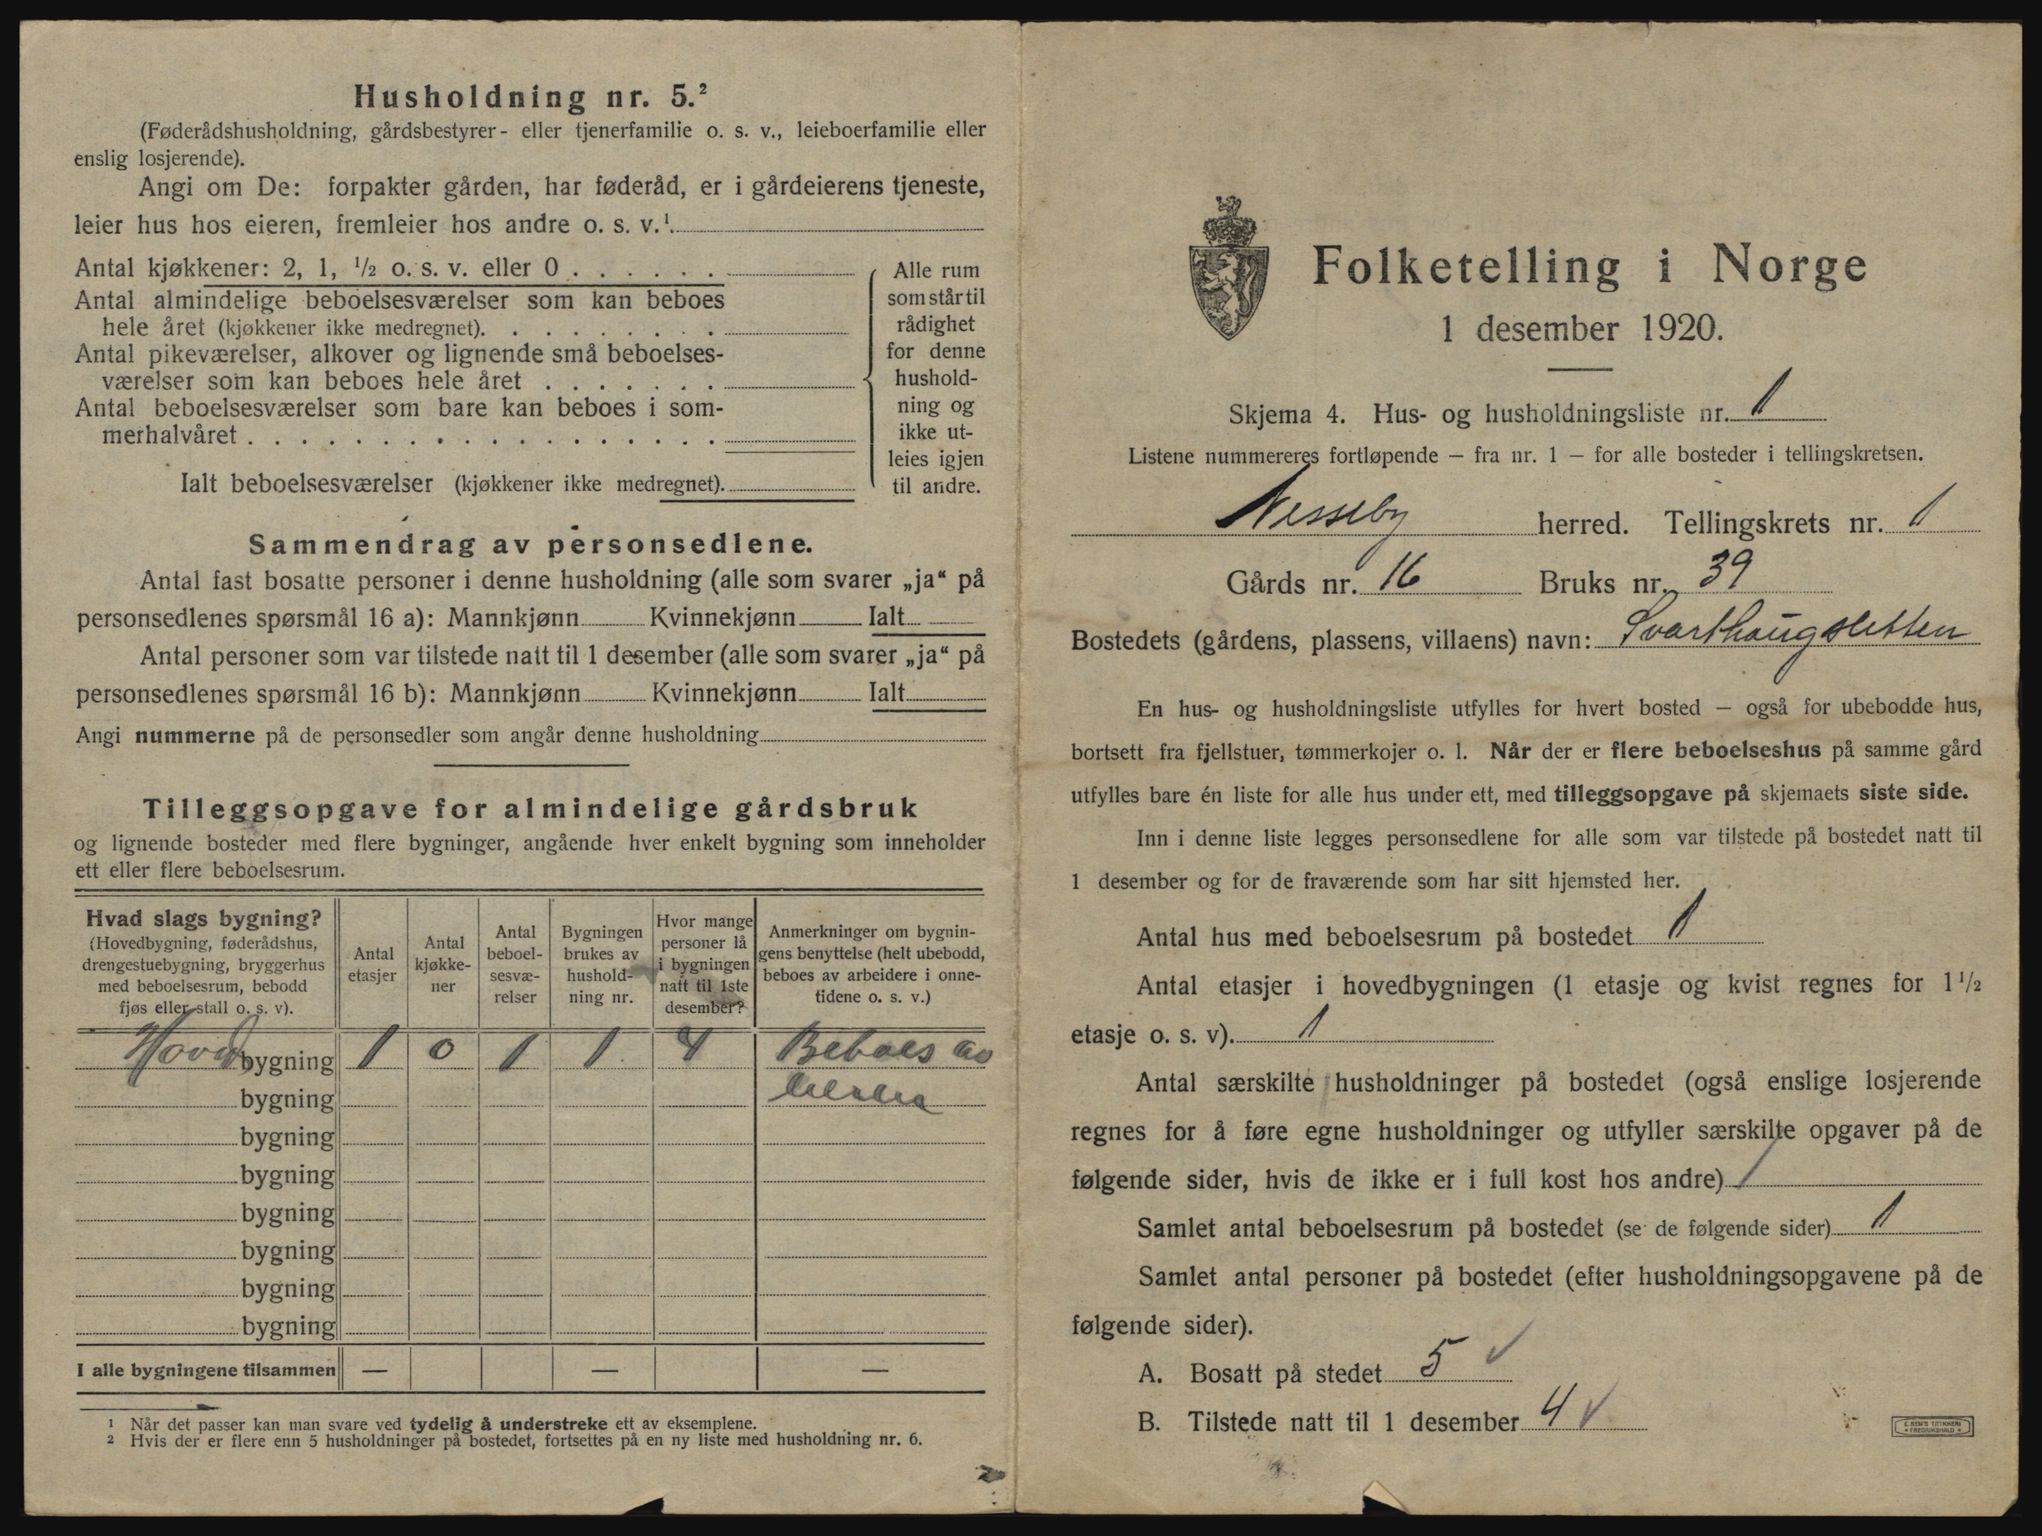 Husholdning nr. 5.²
(Føderådshusholdning, gårdsbestyrer- eller tjenerfamilie o. s. v., leieboerfamilie eller
enslig losjerende).
Angi om De: forpakter gården, har føderåd, er i gårdeierens tjeneste,
leier hus hos eieren, fremleier hos andre o. s. v.¹.
Antal kjøkkener: 2, 1, ½ o. s. v. eller 0
Antal almindelige beboelsesværelser som kan beboes
hele året (kjøkkener ikke medregnet).
Antal pikeværelser, alkover og lignende små beboelses-
værelser som kan beboes hele året
Antal beboelsesværelser som bare kan beboes i som-
merhalvåret
Ialt beboelsesværelser (kjøkkener ikke medregnet).
Alle rum
som står til
rådighet
for denne
hushold-
ning og
ikke ut-
leies igjen
til andre.
Sammendrag av personsedlene.
Antal fast bosatte personer i denne husholdning (alle som svarer „ja“ på
personsedlenes spørsmål 16 a): Mannkjønn Kvinnekjønn Ialt
Antal personer som var tilstede natt til 1 desember (alle som svarer „ja“ på
personsedlenes spørsmål 16 b): Mannkjønn Kvinnekjønn Ialt
Angi nummerne på de personsedler som angår denne husholdning
Tilleggsopgave for almindelige gårdsbruk
og lignende bosteder med flere bygninger, angående hver enkelt bygning som inneholder
ett eller flere beboelsesrum.
Hvad slags bygning?
(Hovedbygning, føderådshus,
drengestuebygning, bryggerhus
med beboelsesrum, bebodd
fjøs eller stall o. s. v).
Antal
etasjer
Antal
kjøkke-
ner
Antal
beboel-
sesvæ-
relser
Bygningen
brukes av
hushold-
ning nr.
Hvor mange
personer lå
i bygningen
natt til 1ste
desember?
Anmerkninger om bygnin-
gens benyttelse (helt ubebodd,
beboes av arbeidere i onne-
tidene o. s. v.)
Hovedbygning 1 0 1 1 4 Beboes av
bygning
bygning
bygning
bygning
bygning
bygning
bygning
I alle bygningene tilsammen — — —
¹ Når det passer kan man svare ved tydelig å understreke ett av eksemplene.
² Hvis der er flere enn 5 husholdninger på bostedet, fortsettes på en ny liste med husholdning nr. 6.
Folketelling i Norge
1 desember 1920.
Skjema 4. Hus- og husholdningsliste nr. 1
Listene nummereres fortløpende — fra nr. 1 — for alle bosteder i tellingskretsen.
Nesseby herred. Tellingskrets nr. 1
Gårds nr. 16 Bruks nr. 39
Bostedets (gårdens, plassens, villaens) navn: Svarthaugsletten
En hus- og husholdningsliste utfylles for hvert bosted — også for ubebodde hus,
bortsett fra fjellstuer, tømmerkojer o. l. Når der er flere beboelseshus på samme gård
utfylles bare én liste for alle hus under ett, med tilleggsopgave på skjemaets siste side.
Inn i denne liste legges personsedlene for alle som var tilstede på bostedet natt til
1 desember og for de fraværende som har sitt hjemsted her.
Antal hus med beboelsesrum på bostedet 1
Antal etasjer i hovedbygningen (1 etasje og kvist regnes for 1½
etasje o. s. v). 1
Antal særskilte husholdninger på bostedet (også enslige losjerende
regnes for å føre egne husholdninger og utfyller særskilte opgaver på de
følgende sider, hvis de ikke er i full kost hos andre) 1
Samlet antal beboelsesrum på bostedet (se de følgende sider) 1
Samlet antal personer på bostedet (efter husholdningsopgavene på de
følgende sider).
A. Bosatt på stedet 5 ✓
B. Tilstede natt til 1 desember 4 ✓